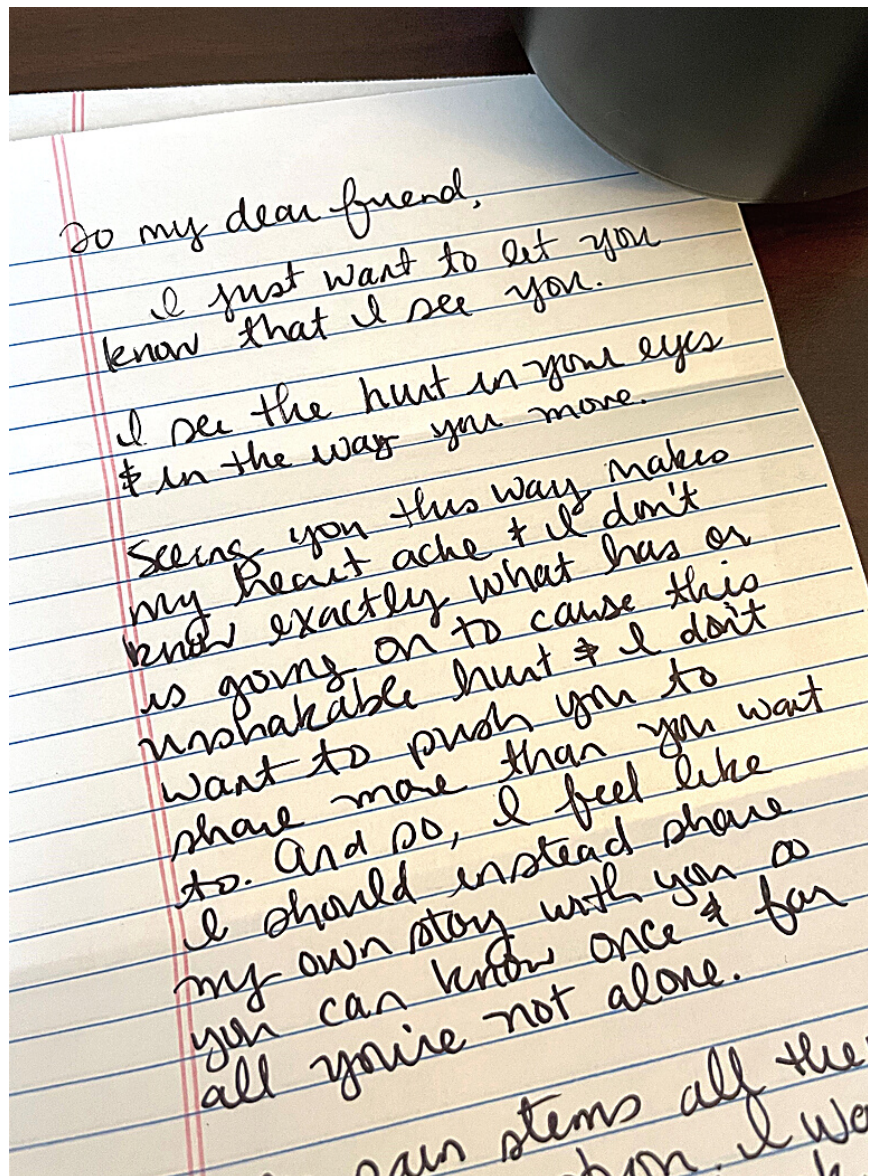 To my dear friend,
I just want to let you
know that I see you.
I see the hurt in your eyes
& in the way you move.
Seeing you this way makes
my heart ache & I don't
know exactly what has or
is going on to cause this
unshakable hurt & I don't
want to push you to
share more than you want
to. And so, I feel like
I should instead share
my own stoy with you so
you can know once & for
all you're not alone.
stems all the
I wo